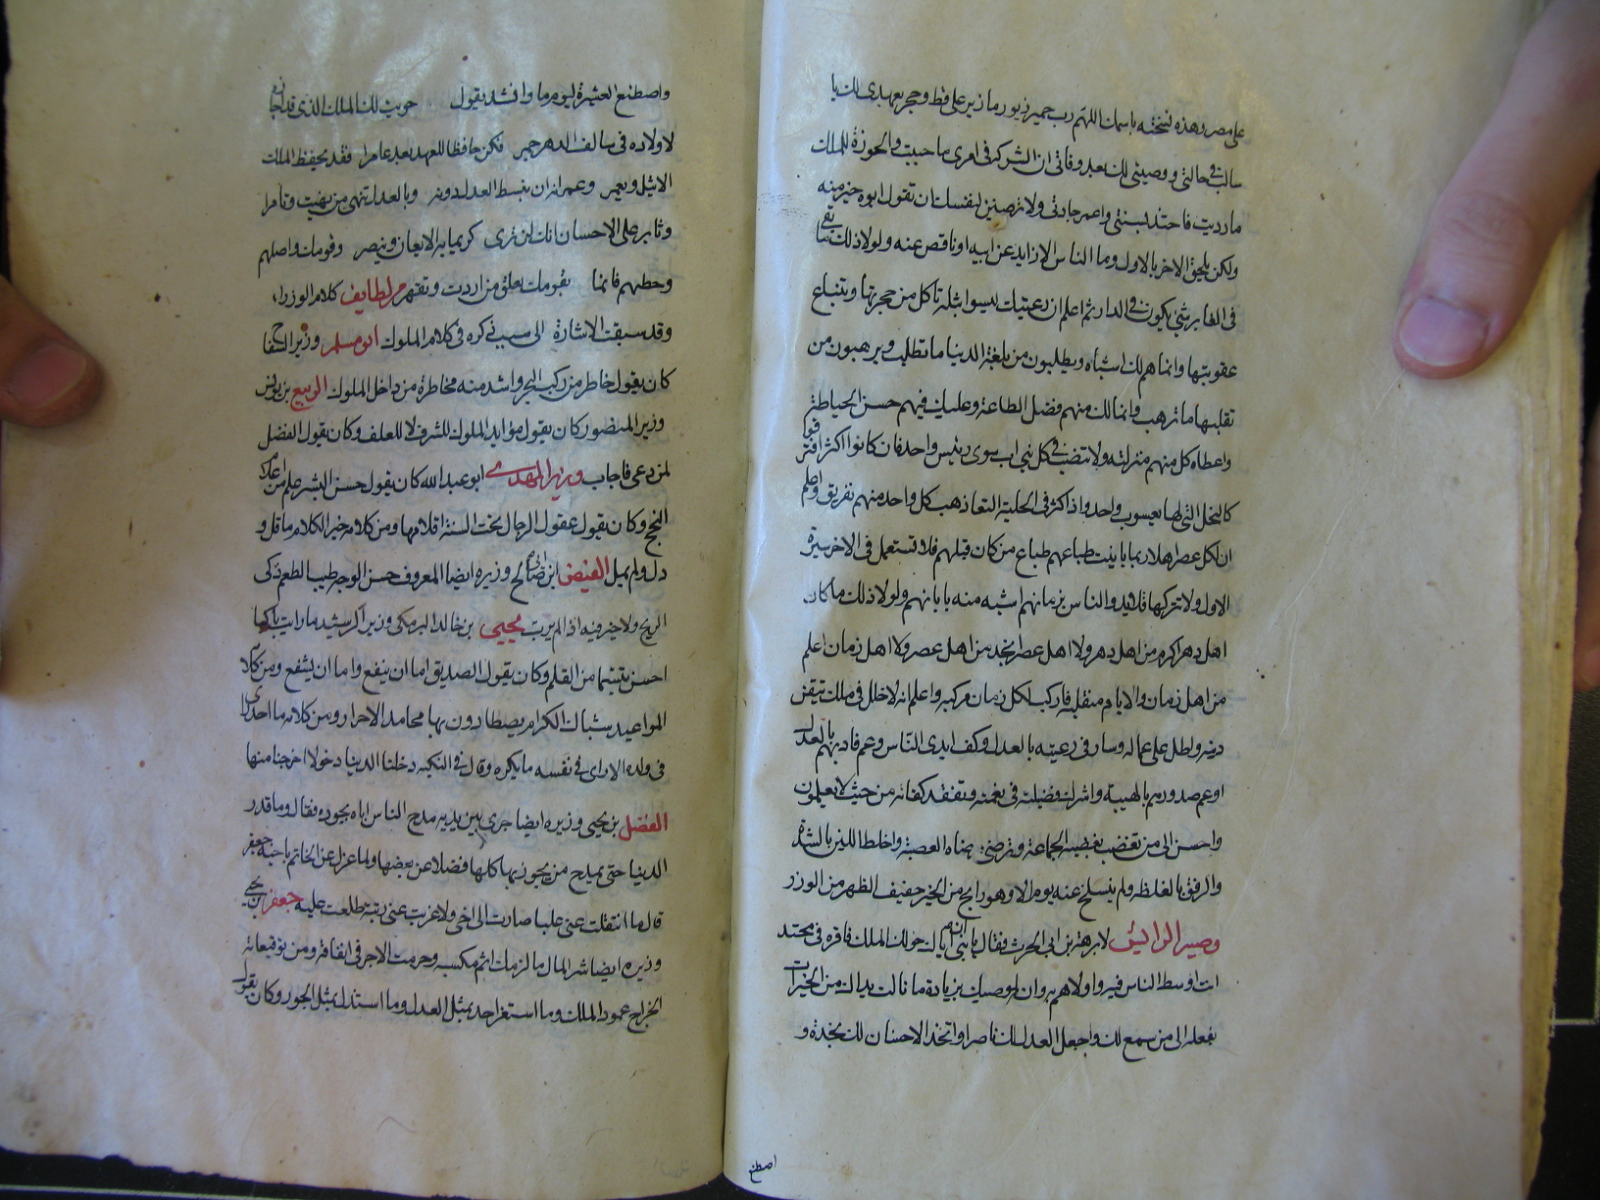 على مصر وهذه نسخته باسمك اللهم رب حمير زبور ما زبر على قط وحجر بعهدي لك يا
سالف حالتي ووصيتي لك بعد وفاتي ان الشرك في امرى ما حييت والحوزة للملك
ما رديت فاحتد لسنتي واعمر جادتي ولا ترضين لنفسك ان تقول ابوه خير منه
ولكن يلحق الاخر بالاول وما الناس الا زايد عن ابيه او ناقص عنه ولولا ذلك ما بقى
في الغابر شي يكون في الدار ثم اعلم ان رعيتك ليسوا بثلة تاكل من حجرتها وتتباع
عقوبتها وانما هم لك اشباه ويطلبون من بلغة الدنيا ما تطلب ويرهبون من
تقلبها ما ترهب وانما لك منهم فضل الطاعة وعليك فيهم حسن الحياطة
واعطاء كل منهم منزلته ولا تنصب في كل بني اب سوى رئيس واحد فان كانوا اكثر افترقوا
كالنحل التي لها يعسوب واحد واذا كثر في الخلية التعاذهب كل واحد منهم تفريق واعلم
ان لكل عصر اهلا ربما باينت طباعهم طباع من كان قبلهم فلا تستعمل في الاخر سيرة
الاول ولا تتركها والناس بزمانهم اشبه منه بابائهم ولولا ذلك ما كان
اهل دهر اكرم من اهل دهر ولا اهل عصر انجد من اهل عصر ولا اهل زمان اعلم
من اهل زمان والايام متقلبة فاركب لكل زمان مركبه واعلم انه لا خلل في ملك تيقن
وطل على عماله وسار في رعيته بالعدل وكف ايدي الناس وعم فاد بهم بالعدل
او عم صدورهم بالهيبة واشرك فضيلته في نعمته وتفقد كفاته من حيث لا يعلمون
واحسن الى من تغضب بغضبه الجماعة وترضى برضاه العصبة واخلط اللين بالشدة
والرفق بالغلظة ولم ينسلخ عنه يوم الا وهو رابح من الخير خفيف الظهر من الوزر
وصية الرايش لابرهة بن ابي الحرث فقال يا بني ان اباك حوك الملك فاقره في محتد
انت اوسط الناس فيه واولاهم به وان اوصيك بزيادة ما نالت يداك من الخيرات
بفعله الى من سمع لك واجعل العدل لك ناصرا واتخذ الاحسان لك نجدة و
اصطنع
واصطنع العشيرة ليوم ما وانشد يقول حويت لك الملك الذي قد اجاءنى
لاولاده في سالف الدهر حمير فكن حافظا للعهد بعد عامرا فقد يحفظ الملك
الاثيل ويعمر وعمرانه ان تبسط العدل دونه وبالعدل تنهى من نهيت وتامر
وثابر على الاحسان انك لن ترى كريما به الا يعان وينصر وقومك واصلهم
وحطهم فانما بقومك تعلو من اردت وتقهر من لطايف كلام الوزراء
وقد سبقت الاشارة الى سبب ذكره في كلام الملوك ابو مسلم وزير السفاح
كان يقول خاطر من ركب البحر واشد منه مخاطرة من داخل الملوك الربيع بن يونس
وزير المنصور كان يقول موايد الملوك للشرف لا للعلف وكان يقول الفضل
لمن دعى فاجاب وزير المهدي ابو عبد الله كان يقول حسن البشر علم من اعلام
النجح وكان يقول عقول الرجال تحت السنة اقلامها ومن كلامه خير الكلام ما قل و
دل ولم يمل الفيض ابن ابي صالح وزيره ايضا المعروف حسن الوجه طيب الطعم ذكى
الريح ولا خير فيه اذا لم يرب يحيى بن خالد البرمكي وزير الرشيد ما رايت باكيا
احسن تبسما من القلم وكان يقول الصديق اما ان ينفع واما ان يشفع ومن كلامه
المواعيد شباك الكرام يصطادون بها محامد الاحرار ومن كلامه ما احد راى
في ولده الا راى في نفسه ما يكره وقال في النكبة دخلنا الدنيا دخولا اخرجنا منها
الفضل بن يحيى وزيره ايضا جرى بين يديه مدح الناس اياه بجوده فقال وما قدر
الدنيا حتى يمدح من يجود بها كلها فضلا عن بعضها ولما عزل عن الخاتم باخيه جعفر
قال ما انتقلت عني عليا صارت الى اخى ولا غربت عني رتبة طلعت عليه جعفر بن يحيى
وزيره ايضا شر المال ما لزمك اثم مكسبه وحرمت الاجر في انفاقه ومن توقيعاته
الخراج عمود الملك وما استغزر احد بمثل العدل وما استنذل بمثل الجور وكان يقول